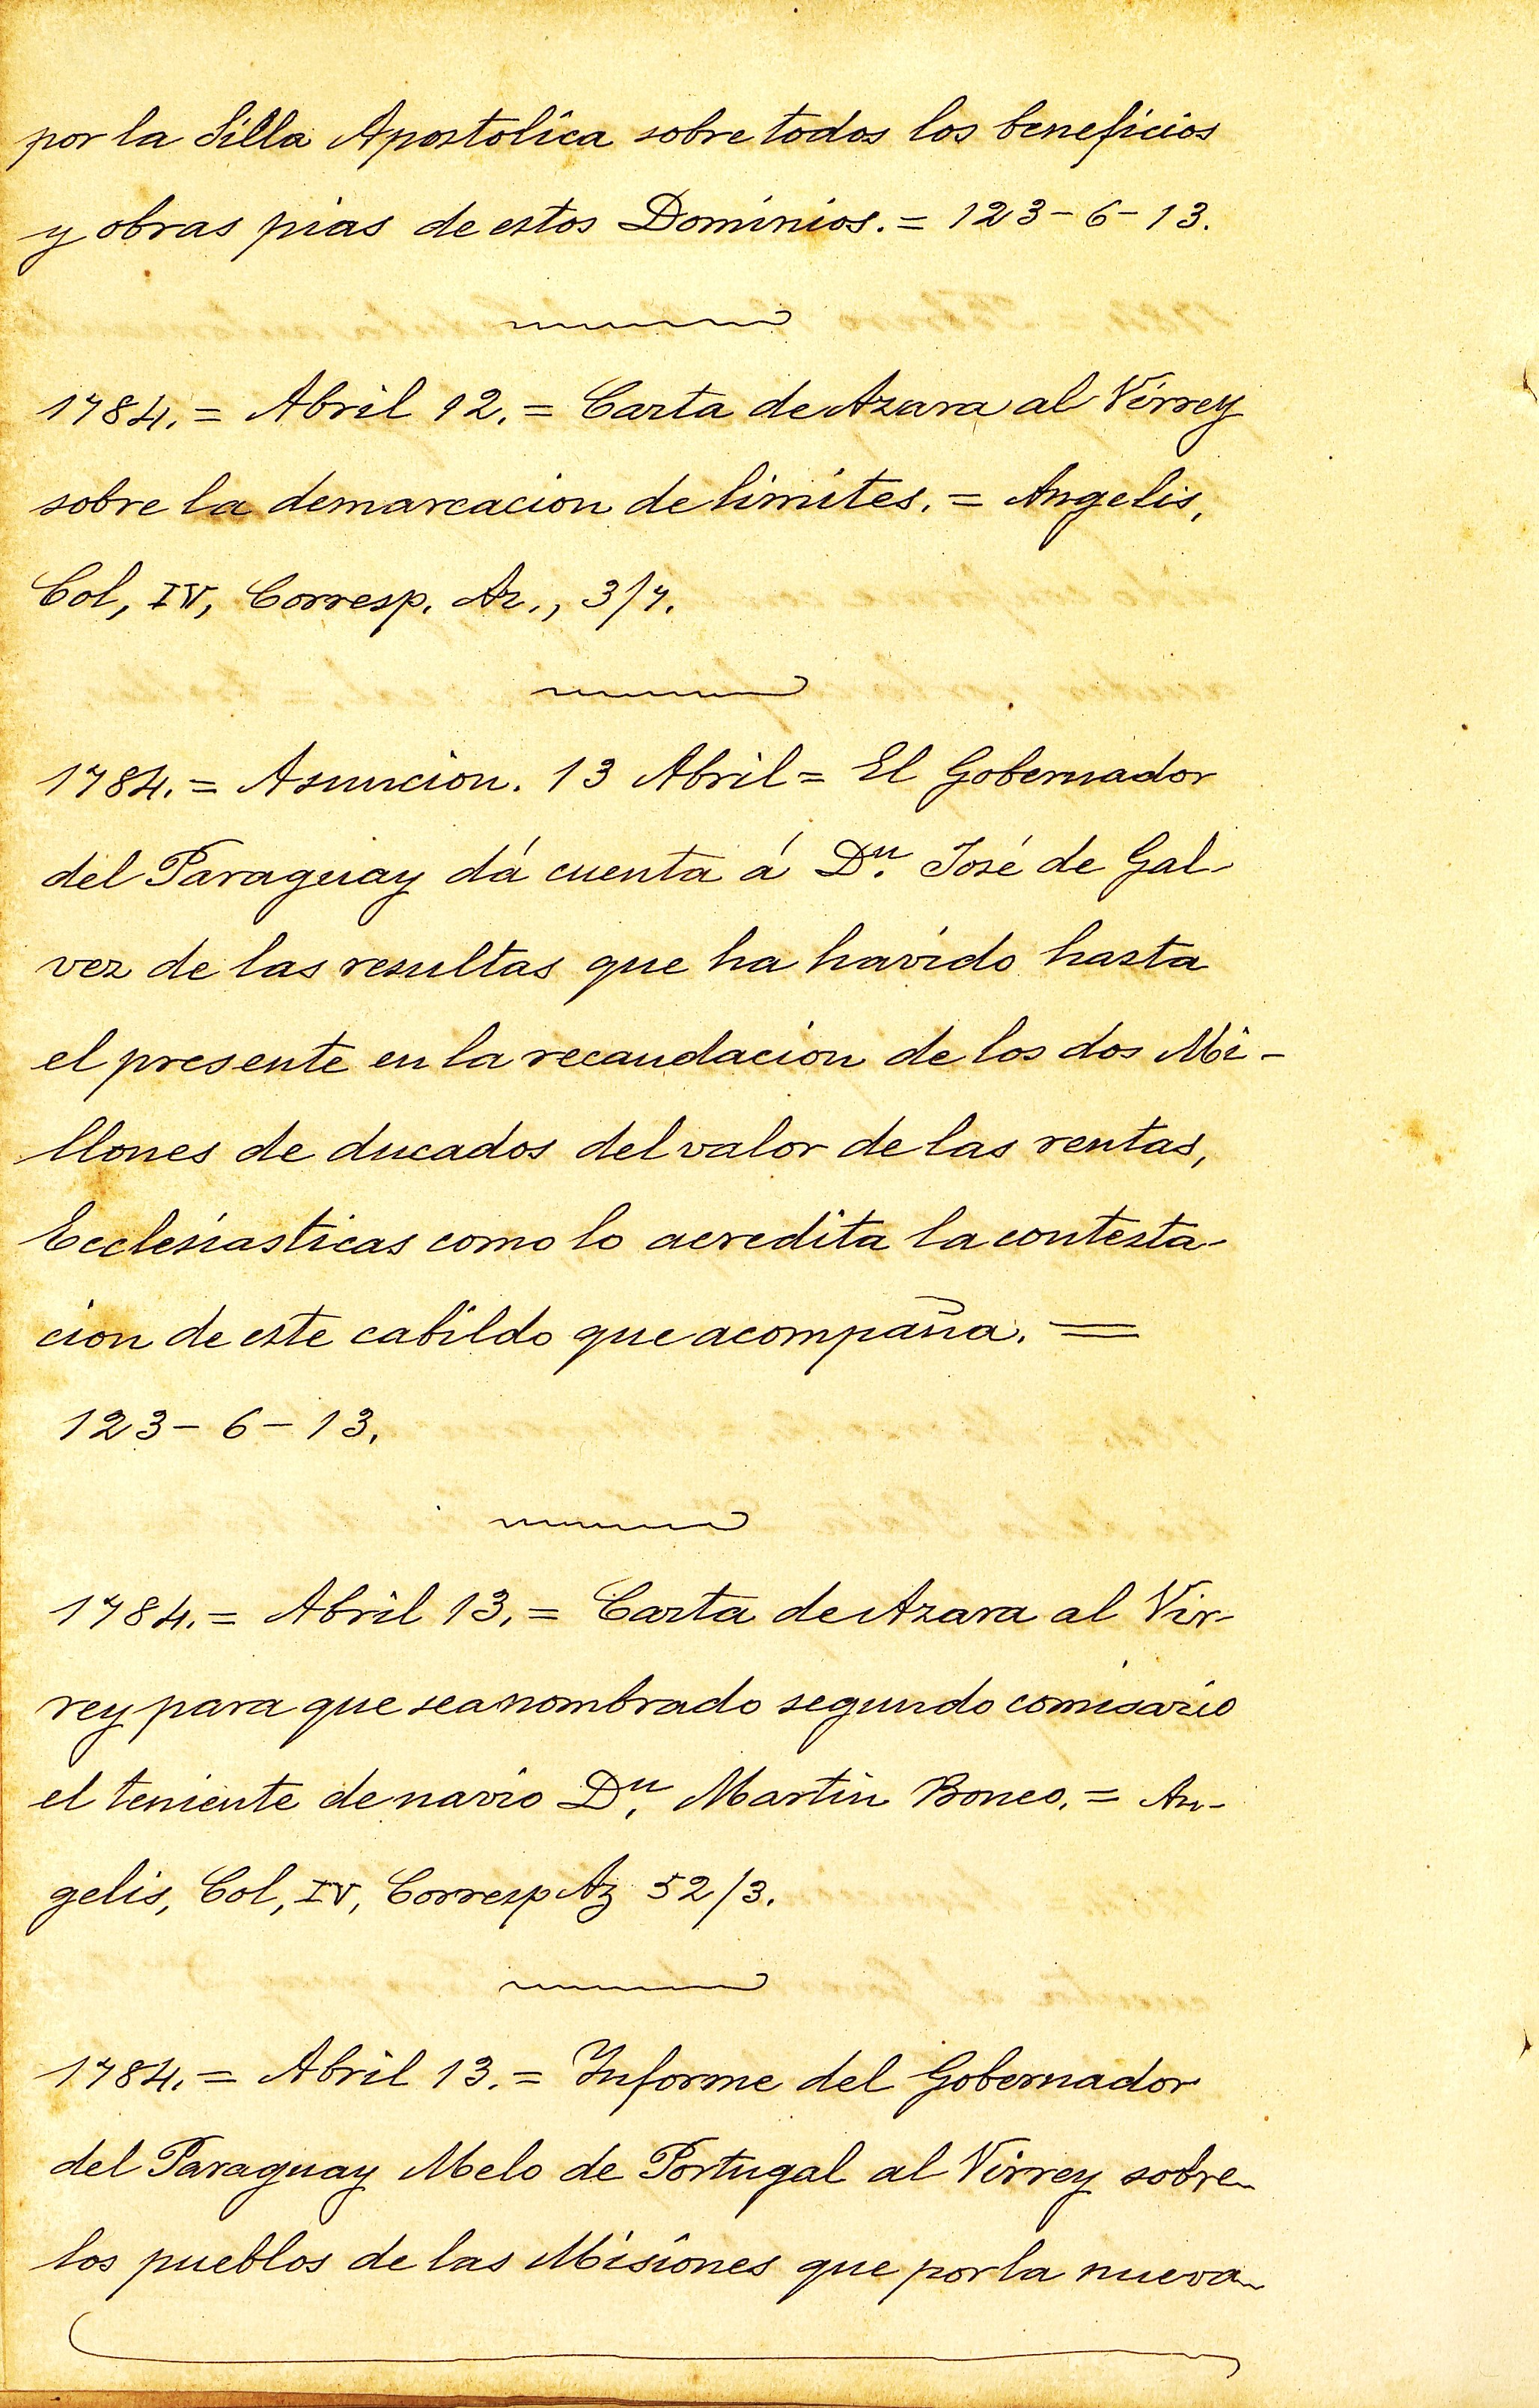 por la Silla Apostolica sobre todos los beneficios
y obras pias de estos Dominios. = 123-6-13.
1784. = Abril 12. = Carta de Azara al Virrey
sobre la demarcacion de limites. = Angelis,
Col, IV, Corresp. Az., 3/7.
1784. = Asuncion. 13 Abril = El Gobernador
del Paraguay dá cuenta á Dn. José de Gal-
vez de las resultas que ha havido hasta
el presente en la recaudacion de los dos Mi-
llones de ducados del valor de las rentas,
Ecclesiasticas como lo acredita la contesta-
cion de este cabildo que acompaña. =
123-6-13.
1784. = Abril 13. = Carta de Azara al Vir-
rey para que sea nombrado segundo comisario
el teniente de navio Dn. Martin Boneo. = An-
gelis, Col, IV, Corresp Az 52/3.
1784. = Abril 13. = Informe del Gobernador
del Paraguay Melo de Portugal al Virrey sobre
los pueblos de las Misiones que por la nueva